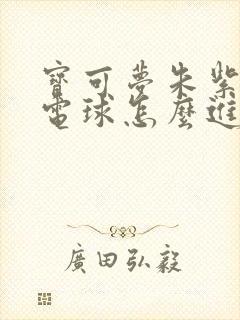 寶可夢朱紫
電球怎麼進
廣田弘毅